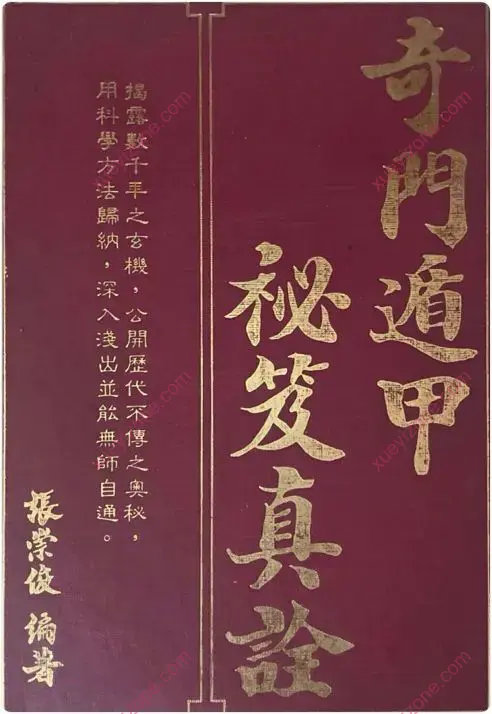 奇門遁甲
祕笈真詮
揭露數千年之玄機，公開歷代不傳之奧秘，
用科學方法歸納，深入淺出並能無師自通。
張崇俊 編著